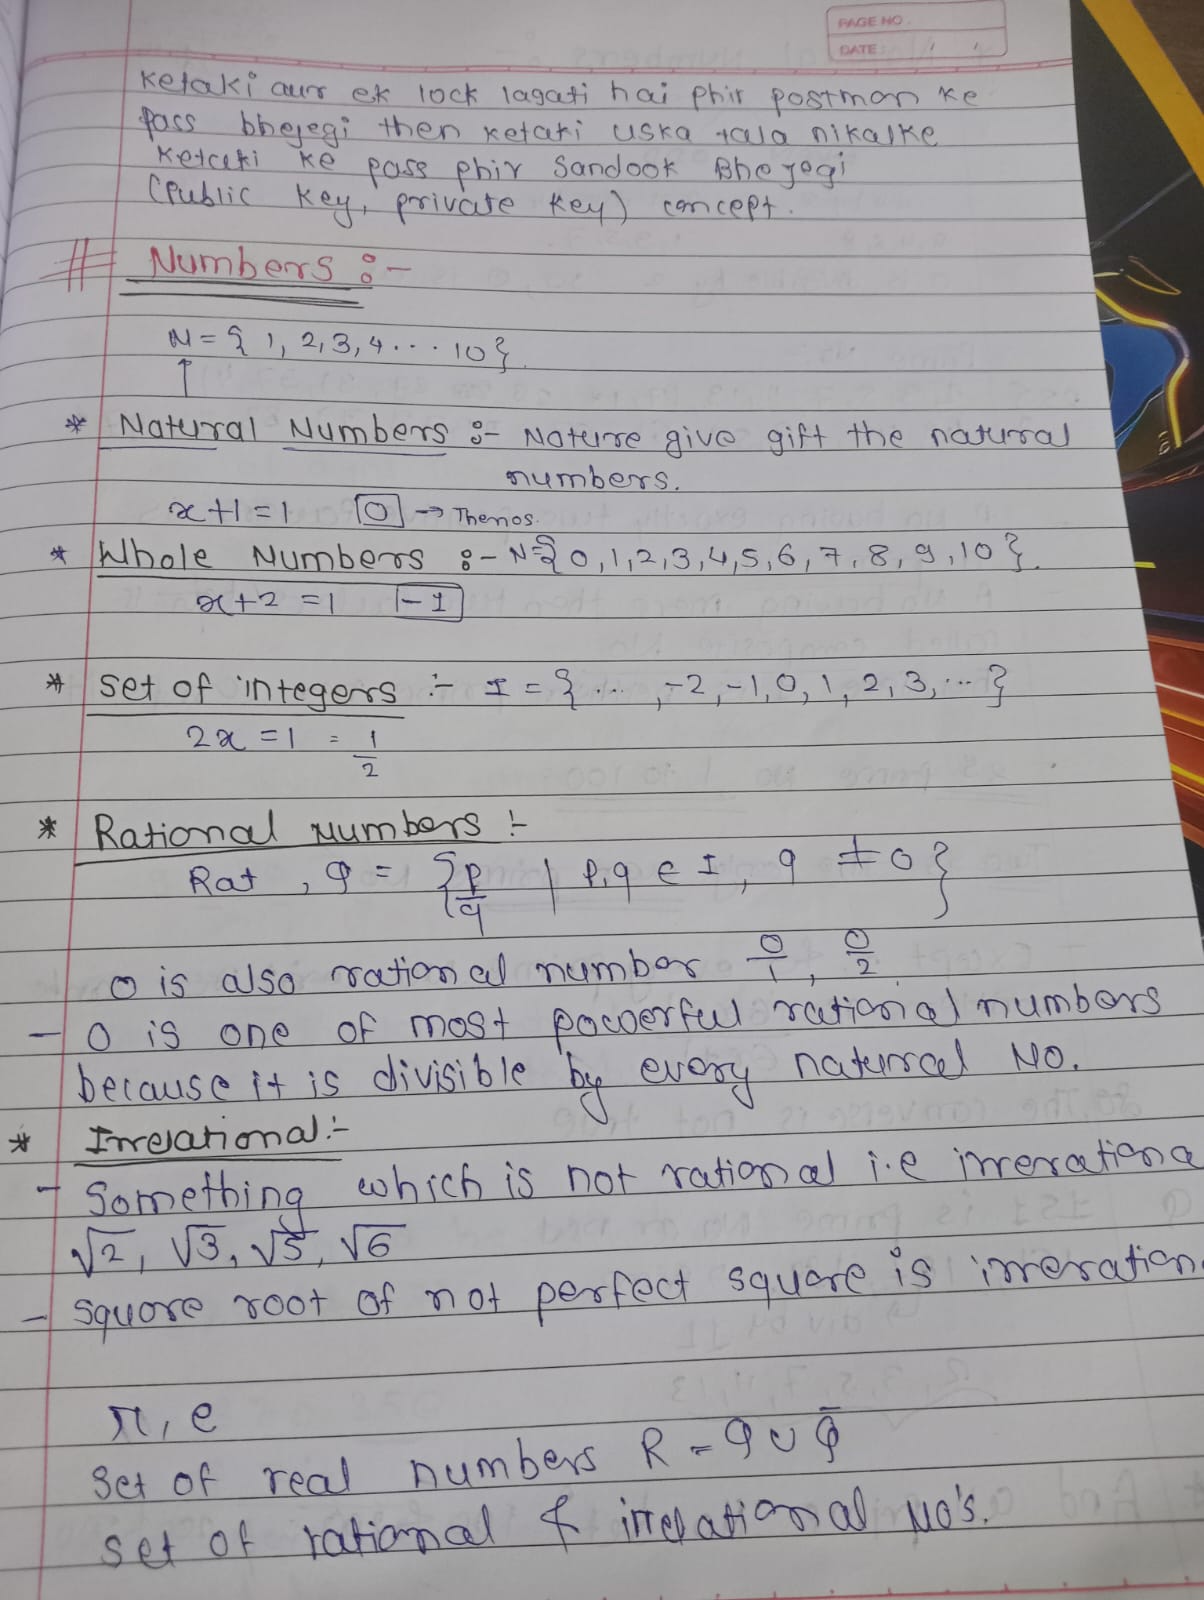 PAGE NO.
DATE: / /
Ketaki aur ek lock lagati hai phir postman ke
pass bhejegi then ketaki uska tala nikalke
Ketaki ke pass phir Sandook Bhejegi
(Public key, private key) concept.
# Numbers :-
N = { 1, 2, 3, 4 . . . 10 }
↑
* Natural Numbers :- Nature give gift the natural
numbers.
x+1 = 1 0 →
* Whole Numbers :- N={0,1,2,3,4,5,6,7,8,9,10}.
x+2 = 1 -1
* set of integers :- I = { ... , -2, -1, 0, 1, 2, 3, ... }
2x = 1 = 1/2
* Rational Numbers :-
Rat , Q = { p/q | p,q ∈ I, q ≠ 0 }
0 is also rational number 0/1, 0/2
- 0 is one of most powerful rational numbers
because it is divisible by every natural No.
* Irrational :-
- Something which is not rational i.e irrerationa
√2, √3, √5, √6
- square root of not perfect square is irreration
π, e
set of real numbers R = Q ∪ Q̄
set of rational & irrelational No's.